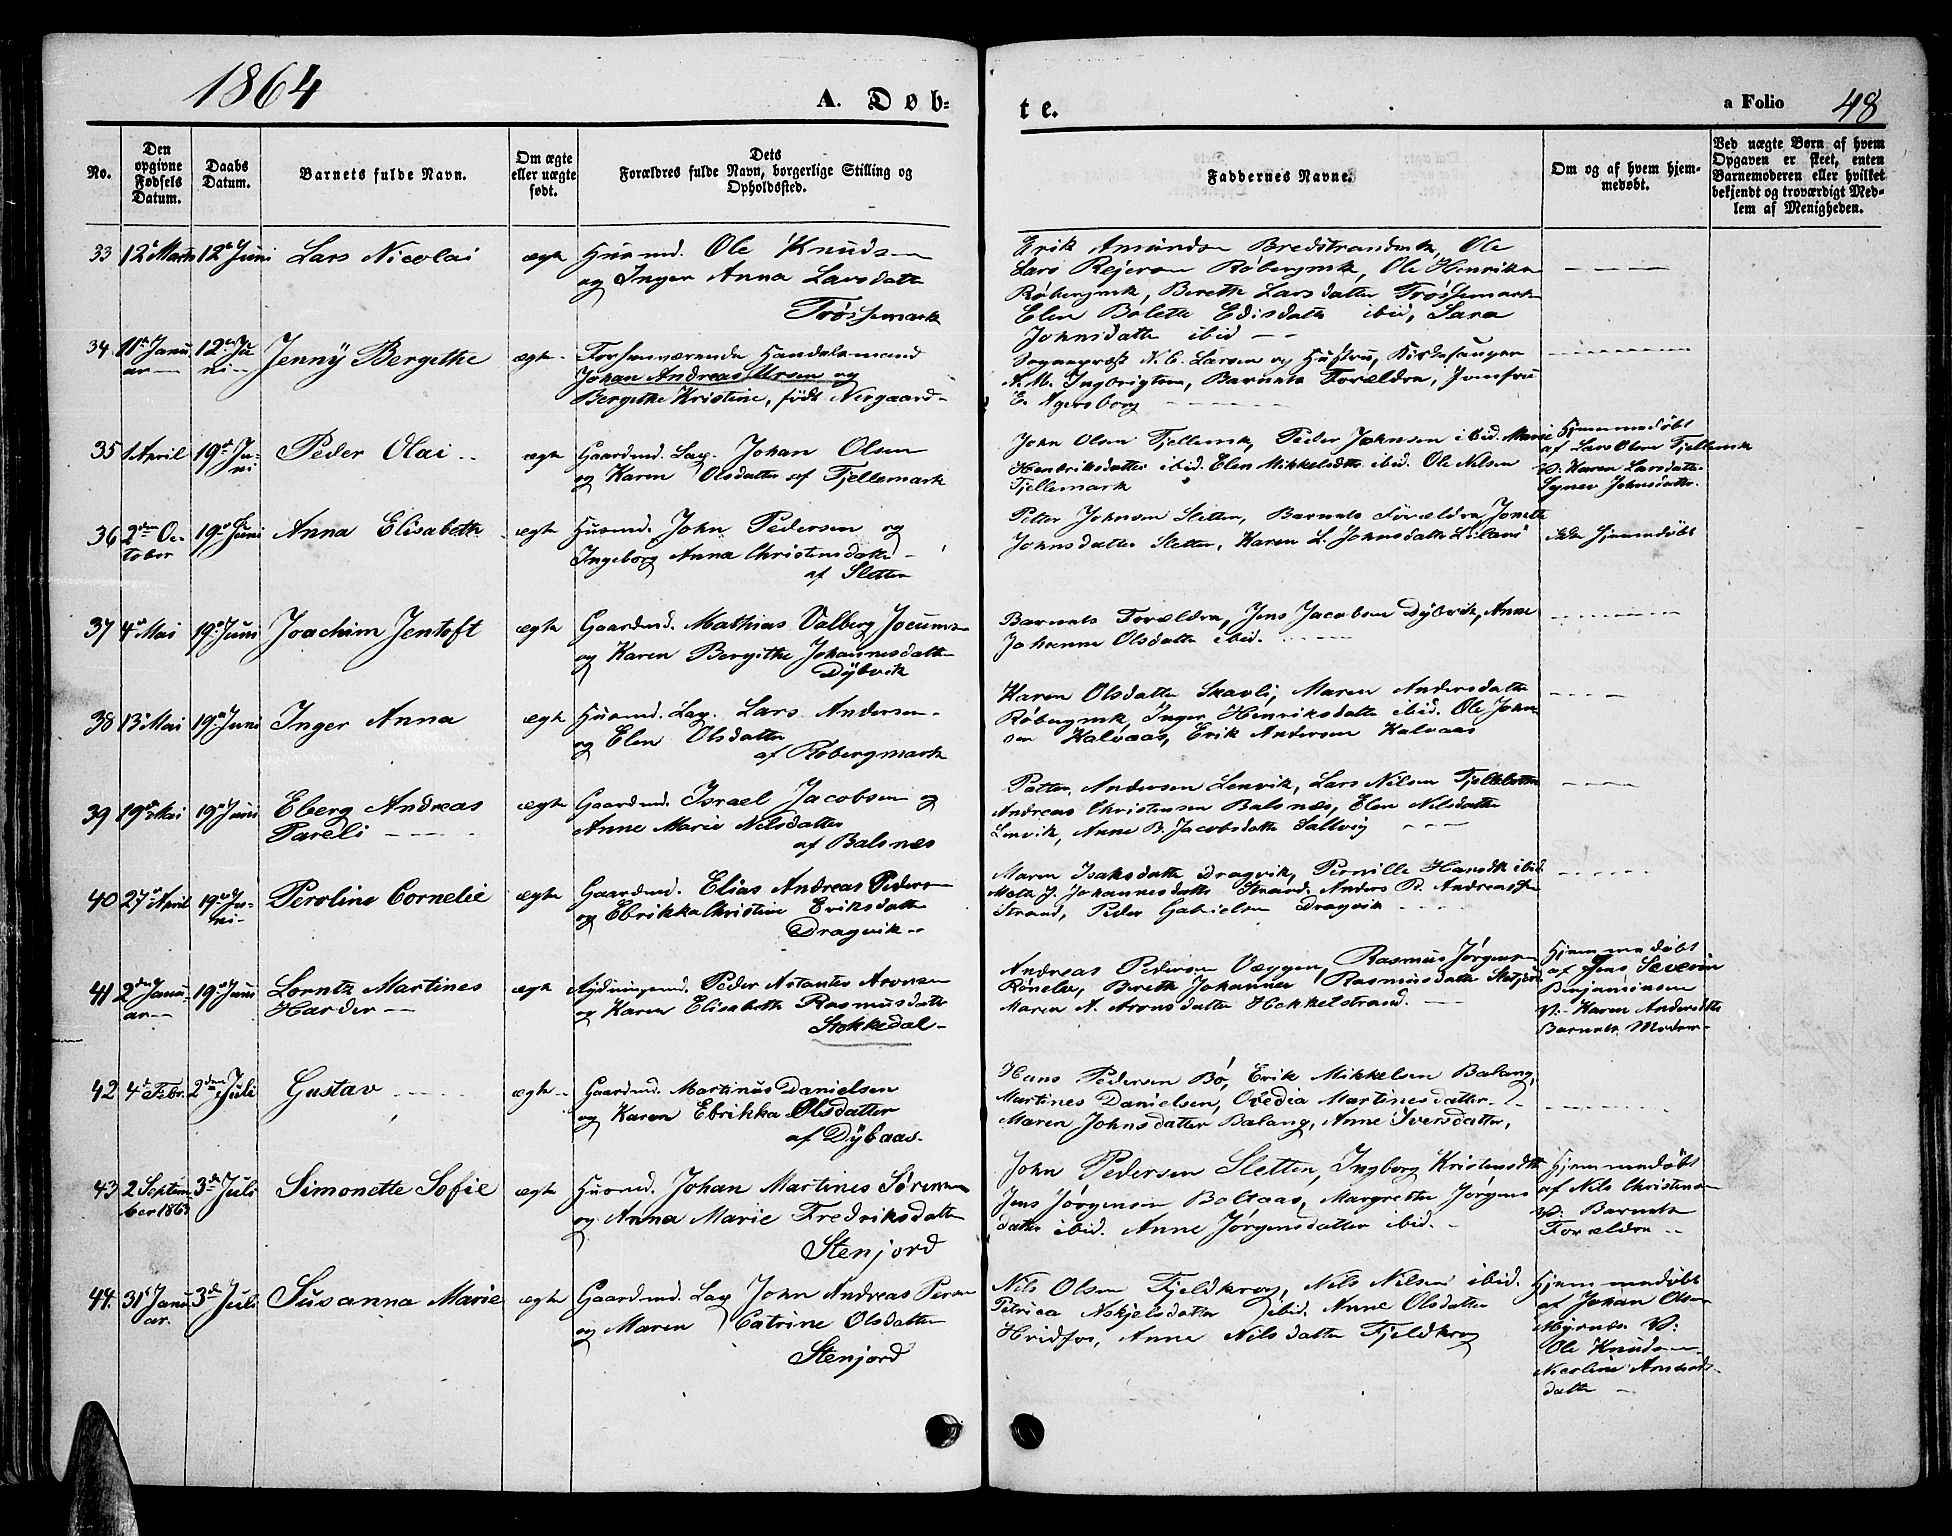 1864
A. Døb-
te.
a Folio 48
No.
Den opgivne Fødsels Datum.
Daabs Datum.
Barnets fulde Navn.
Om ægte eller uægte født.
Dets Forældres fulde Navn, borgerlige Stilling og Opholdssted.
Faddernes Navne.
Om og af hvem hjemmedøbt.
Ved uægte Børn af hvem Opgaven er skeet, enten Barnemoderen eller hvilket bekjendt og troværdigt Medlem af Menigheden.
33 12te Marts 12te Juni Lars Nicolai ægte Husmd. Ole Knudsen
og Inger Anna Larsdatter
Trøssemark
Erik Amundsen Bredstrandmk, Ole
Lars Rejersen Røbergmk, Ole Henriksen
Røbergmk, Bereth Larsdatter Trøssemark
Elen Bolette Edisdatter ibid, Sara
Johnsdatter ibid
34 11te Janu- 12te Ju- Jenny Bergithe ægte Forhenværende Handelsmand
ar ni Johan Andreas Ursen og
Bergithe Kristine, født Nergaard
Sognepræst N. C. Larsen og Hustru, Kirkesanger
A. M. Ingbrigtsen, Barnets Forældre, Jomfru
E. Agersborg
35 1 April 19de Ju- Peder Olai ægte Gaardmd. Lag. Johan Olsen
ni og Karen Olsdatter af Fjellemark
John Olsen Fjellemk, Peder Johnsen ibid. Marie
Henriksdatter ibid. Elen Mikkelsdtr ibid. Ole Nilsen
Fjellemark
Hjemmedøbt
af Lars Olsen Fjellemk
V: Karen Larsdatter
Synev Johnsdatter
36 2den Oc- 19de Juni Anna Elisabeth ægte Husmd. John Pedersen og
tober Ingeborg Anna Christensdatter
af Sletten
Petter Johnsen Sletten, Barnets Forældre, Jonette
Johnsdatter Sletten, Karen L. Johnsdatter
ikke Hjemmedøbt
37 4de Mai 19de Juni Joachim Jentoft ægte Gaardmd. Mathias Valberg Jocumsen
og Karen Bergithe Johannesdatter
Dybvik
Barnets Forældre, Jens Jacobsen Dybvik, Anne
Johanne Olsdatter ibid.
38 13de Mai 19de Juni Inger Anna ægte Husmd. Lag. Lars Andersen
og Elen Olsdatter
af Røbergmark
Karen Olsdatter Skavli, Maren Andersdatter
Røbergmk, Inger Henriksdatter ibid. Ole John-
sen Kalvaas, Erik Andersen Kalvaas
39 19de Mai 19de Juni Eberg Andreas ægte Gaardmd. Israel Jacobsen og
Pareli Anne Marie Nilsdatter
af Balsnes
Petter Andersen Lenvik, Lars Nilsen
Andreas Christensen Balsnes, Elen Nilsdatter
Lenvik, Anne B. Jacobsdatter Sallvig
40 27de April 19de Ju- Peroline Cornelie ægte Gaardmd. Elias Andreas Pedersen
ni og Ebrikka Christine Eriksdatter
Dragvik
Maren Isaksdatter Dragvik, Pernille Hansdtr ibid.
Meth J. Johannesdatter Strand, Anders P. Andreassen
Strand, Peder Gabrielsen Dragvik
41 2den Janu- 19de Juni Lorntz Martines ægte Rydningsmd. Peder Astantes Aronsen
ar Harder og Karen Elisabeth Rasmusdatter
Stokkedal
Andreas Pedersen Væggen, Rasmus Jørgensen
Rønelv, Bereth Johanne Rasmusdatter
Maren A. Aronsdatter Hekkelstrand.
Hjemmedøbt
af Jens Severin
Benjaminsen
V: Karen Andersdtr
Barnets Moder
42 4de Febr. 2den Juli Gustav ægte Gaardmd. Martinus Danielsen
og Karen Ebrikka Olsdatter
af Dybaas
Hans Pedersen Bø, Erik Mikkelsen Balang,
Martines Danielsen, Ovedia Martinesdatter
Maren Johnsdatter Balang, Anne Iversdatter,
43 2 Septem- 3de Juli Simonette Sofie ægte Husmd. Johan Martines Sørensen
ber 1863 og Anna Marie Fredriksdatter
Stenjord
John Pedersen Sletten, Ingborg Kristensdtr
Jens Jørgensen Boltaas, Margrethe Jørgens
datter ibid. Anne Jørgensdatter ibid.
Hjemmedøbt
af Nils Christensen
V: Barnets
Forældre
44. 31te Janu- 3de Juli Susanna Marie ægte Gaardmd. Lag John Andreas Persen
ar. og Maren Catrine Olsdatter
Stenjord
Nils Olsen Fjeldkrog, Nils Nilsen ibid.
Petrica Askjelsdatter ibid. Anne Olsdatter
Hvidfos, Anne Nilsdatter Fjeldkrog
Hjemmedøbt
af Johan Olsen
V:
Ole Knudsen
Nicoline Amunds-
datter